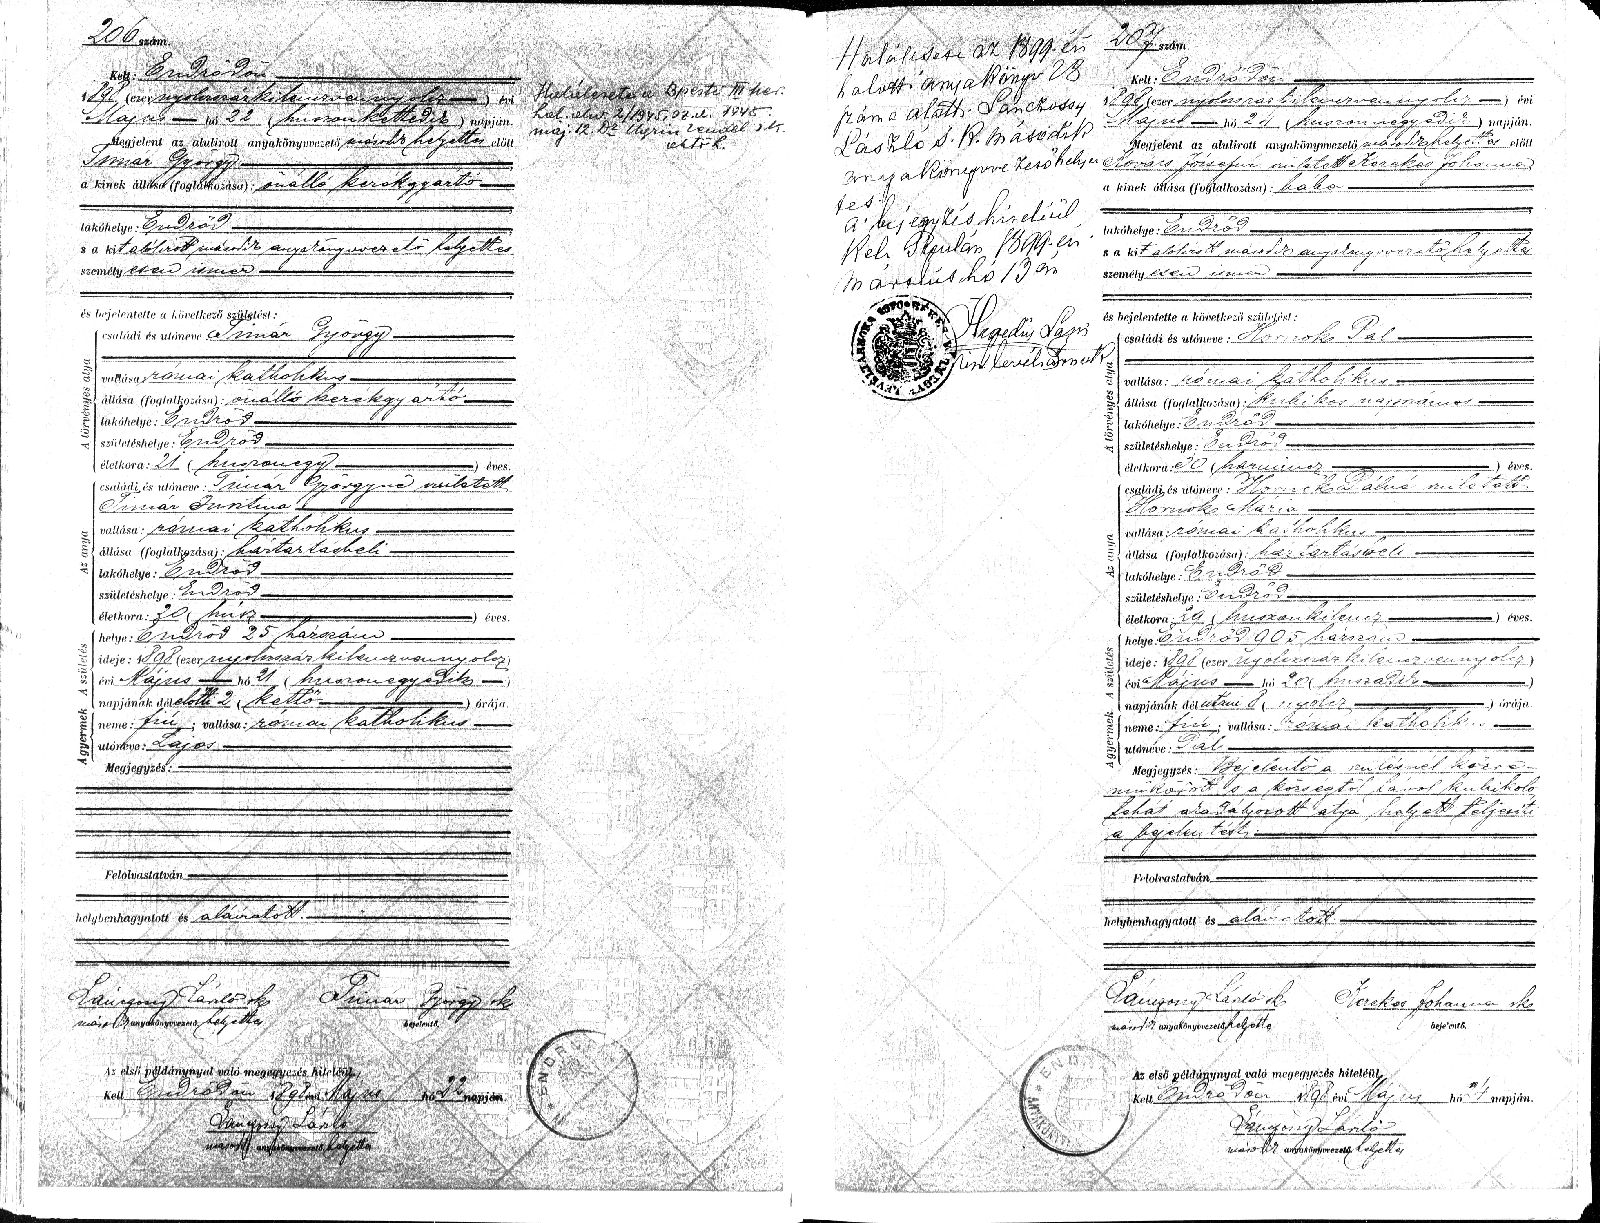 206 szám.
Kelt: Endrődön
1898 (ezer nyolcszázkilenczvennyolcz) évi
Május hó 22 (huszonkettedik) napján.
Megjelent az alulirott anyakönyvvezető másodhelyettes előtt
Timár György
a kinek állása (foglalkozása): önálló kerékgyártó
lakóhelye: Endrőd
s a kit alólirott másod anyakönyvvezető helyettes
személyesen ismer
és bejelentette a következő születést:
A törvényes atya
családi és utóneve Timár György
vallása: római katholikus
állása (foglalkozása): önálló kerékgyártó
lakóhelye: Endrőd
születéshelye: Endrőd
életkora: 21 (huszonegy) éves.
Az anya
családi és utóneve: Timár Györgyné született
Timár Justina
vallása: római katholikus
állása (foglalkozása): háztartásbeli
lakóhelye: Endrőd
születéshelye: Endrőd
életkora: 20 (húsz) éves.
A születés
helye: Endrőd 25 házszám
ideje: 1898 (ezer nyolcszázkilenczvennyolcz)
évi Május hó 21 (huszonegyedik)
napjának délelőtti 2 (kettő) órája.
A gyermek
neme: fiú; vallása: római katholikus
utóneve: Lajos
Megjegyzés:
Felolvastatván
helybenhagyatott és aláiratott.
László sk Timár György sk
másod anyakönyvvezető helyettes bejelentő.
Az első példánynyal való megegyezés hiteléül.
Kelt Endrődön 1898 évi Május hó 22 napján.
László
másod anyakönyvvezető helyettes
ENDRŐD
Halálesete a Bpesti III ker.
hal. 1945
máj. 12.
207 szám.
Kelt: Endrődön
1898 (ezer nyolcszázkilenczvennyolcz) évi
Május hó 24 (huszonnegyedik) napján.
Megjelent az alulirott anyakönyvvezető másodhelyettes előtt
Kovács született Kerekes Johanna
a kinek állása (foglalkozása): bába
lakóhelye: Endrőd
s a kit alólirott másod anyakönyvvezető helyettes
személyesen ismer
és bejelentette a következő születést:
A törvényes atya
családi és utóneve: Hornok Pál
vallása: római katholikus
állása (foglalkozása): kubikos napszámos
lakóhelye: Endrőd
születéshelye: Endrőd
életkora: 30 (harmincz) éves.
Az anya
családi és utóneve: Hornok Pálné született
Hornok Mária
vallása: római katholikus
állása (foglalkozása): háztartásbeli
lakóhelye: Endrőd
születéshelye: Endrőd
életkora: 29 (huszonkilencz) éves.
A születés
helye: Endrőd 905 házszám
ideje: 1898 (ezer nyolcszázkilenczvennyolcz)
évi Május hó 20 (huszadik)
napjának délutáni 8 (nyolcz) órája.
A gyermek
neme: fiú; vallása: római katholikus
utóneve: Pál
Megjegyzés: Bejelentő a szülésnél közre-
működött s a községtől távol kubikoló
tehát akadályozott atya helyett teljesíti
a bejelentést.
Felolvastatván
helybenhagyatott és aláiratott
László sk Kerekes Johanna sk
másod anyakönyvvezető helyettes bejelentő.
Az első példánynyal való megegyezés hiteléül.
Kelt Endrődön 1898 évi Május hó 24 napján.
László
másod anyakönyvvezető helyettes
Halálesete az 1899. évi
halotti anyakönyv 28
száma alatt.
László s. k. második
anyakönyvvezetőhelyet
tes.
A bejegyzés hiteléül
Kelt Gyulán 1899. évi
március hó 13 án